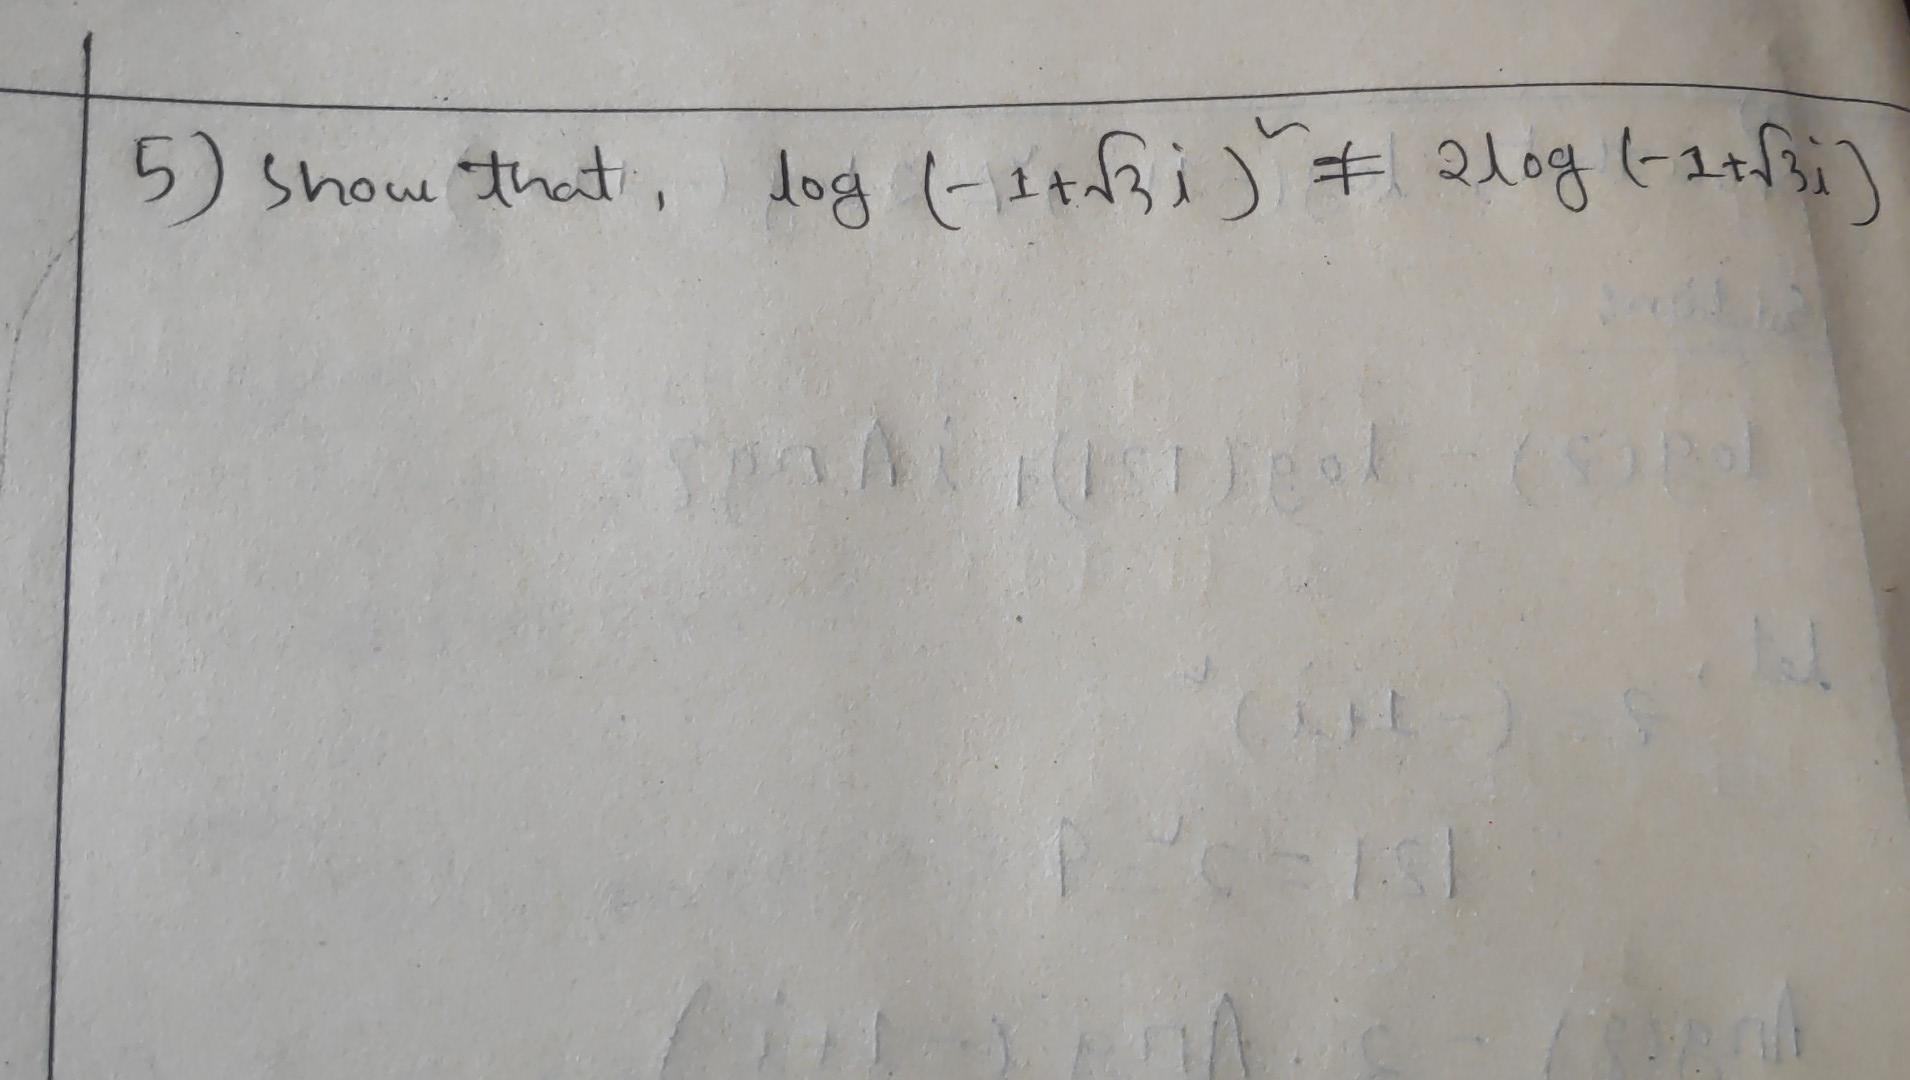 5) Show that, log (-1+√3i)² ≠ 2log (-1+√3i)